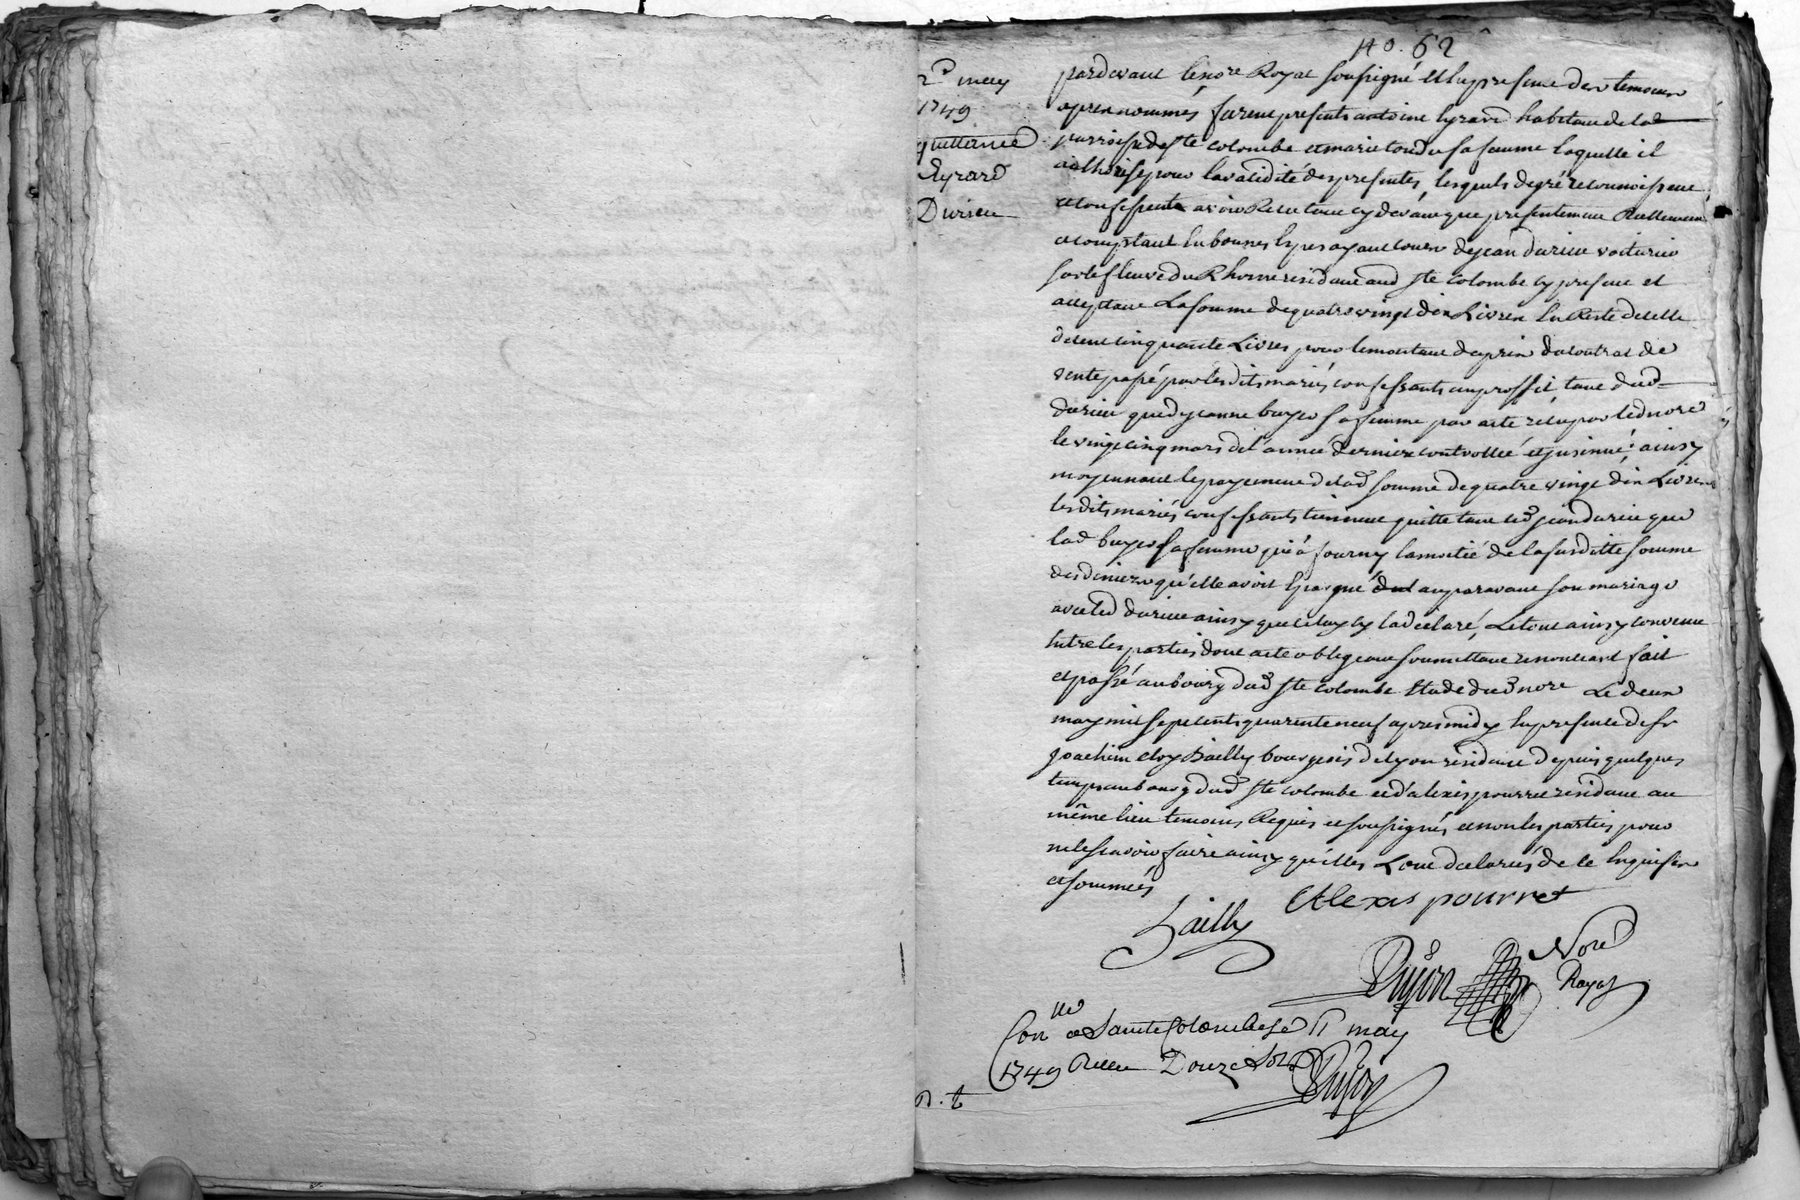 No. 62
2e may
1749
quittance
Eyrard
Durieu
pardevant le nore Royal soussigné et en presence des temoins
apres nommés furent presents antoine eyrard habitant de lad
parroisse de ste colombe et marie sa femme laquelle il
authorise pour la validité des presentes, lesquels de gré reconnoissent
et confessent avoir Recu tant cy devant que presentement Reellement
et comptant en bonnes especes ayant cours de jean durieu voiturier
sur le fleuve du Rhosne residant aud ste colombe cy present et
acceptant La somme de quatre vingt dix Livres en Reste de celle
de cent cinquante Livres pour le montant du prix du contrat de
vente passé par les dits mariés confessants au proffit tant dud
durieu que de jeanne buyer sa femme par acte recu par led nore
le vingt cinq mars de l'année derniere controllée et insinué; ainsy
moyennant le payement de lad somme de quatre vingt dix Livres
lesdits mariés confessants tiennent quitte tant led jean durieu que
lad buyer sa femme qui a fourny la moitié de la susditte somme
des deniers qu'elle avoit epargné auparavant son mariage
avec led durieu ainsy que celuy cy l'a declaré, Le tout ainsy convenu
entre les parties dont acte obligeant soumettant renonceant fait
et passé au bourg dud ste colombe etude dud nore Le deux
may mil sept cents quarente neuf apres midy en presence de sr
joachim eloy Bailly bourgeois de lyon residant depuis quelques
temps au bourg dud ste colombe et d'alexis pourret residant au
même lieu temoins Requis et soussignés et non les parties pour
ne le scavoir faire ainsy qu'elles L'ont declarés de ce enquises
et sommées
Bailly Alexis pourret
Dujon Nore
Royal
Conlle a Sainte Colombe le 11 may
1749 Recu Douze sols
Dujon